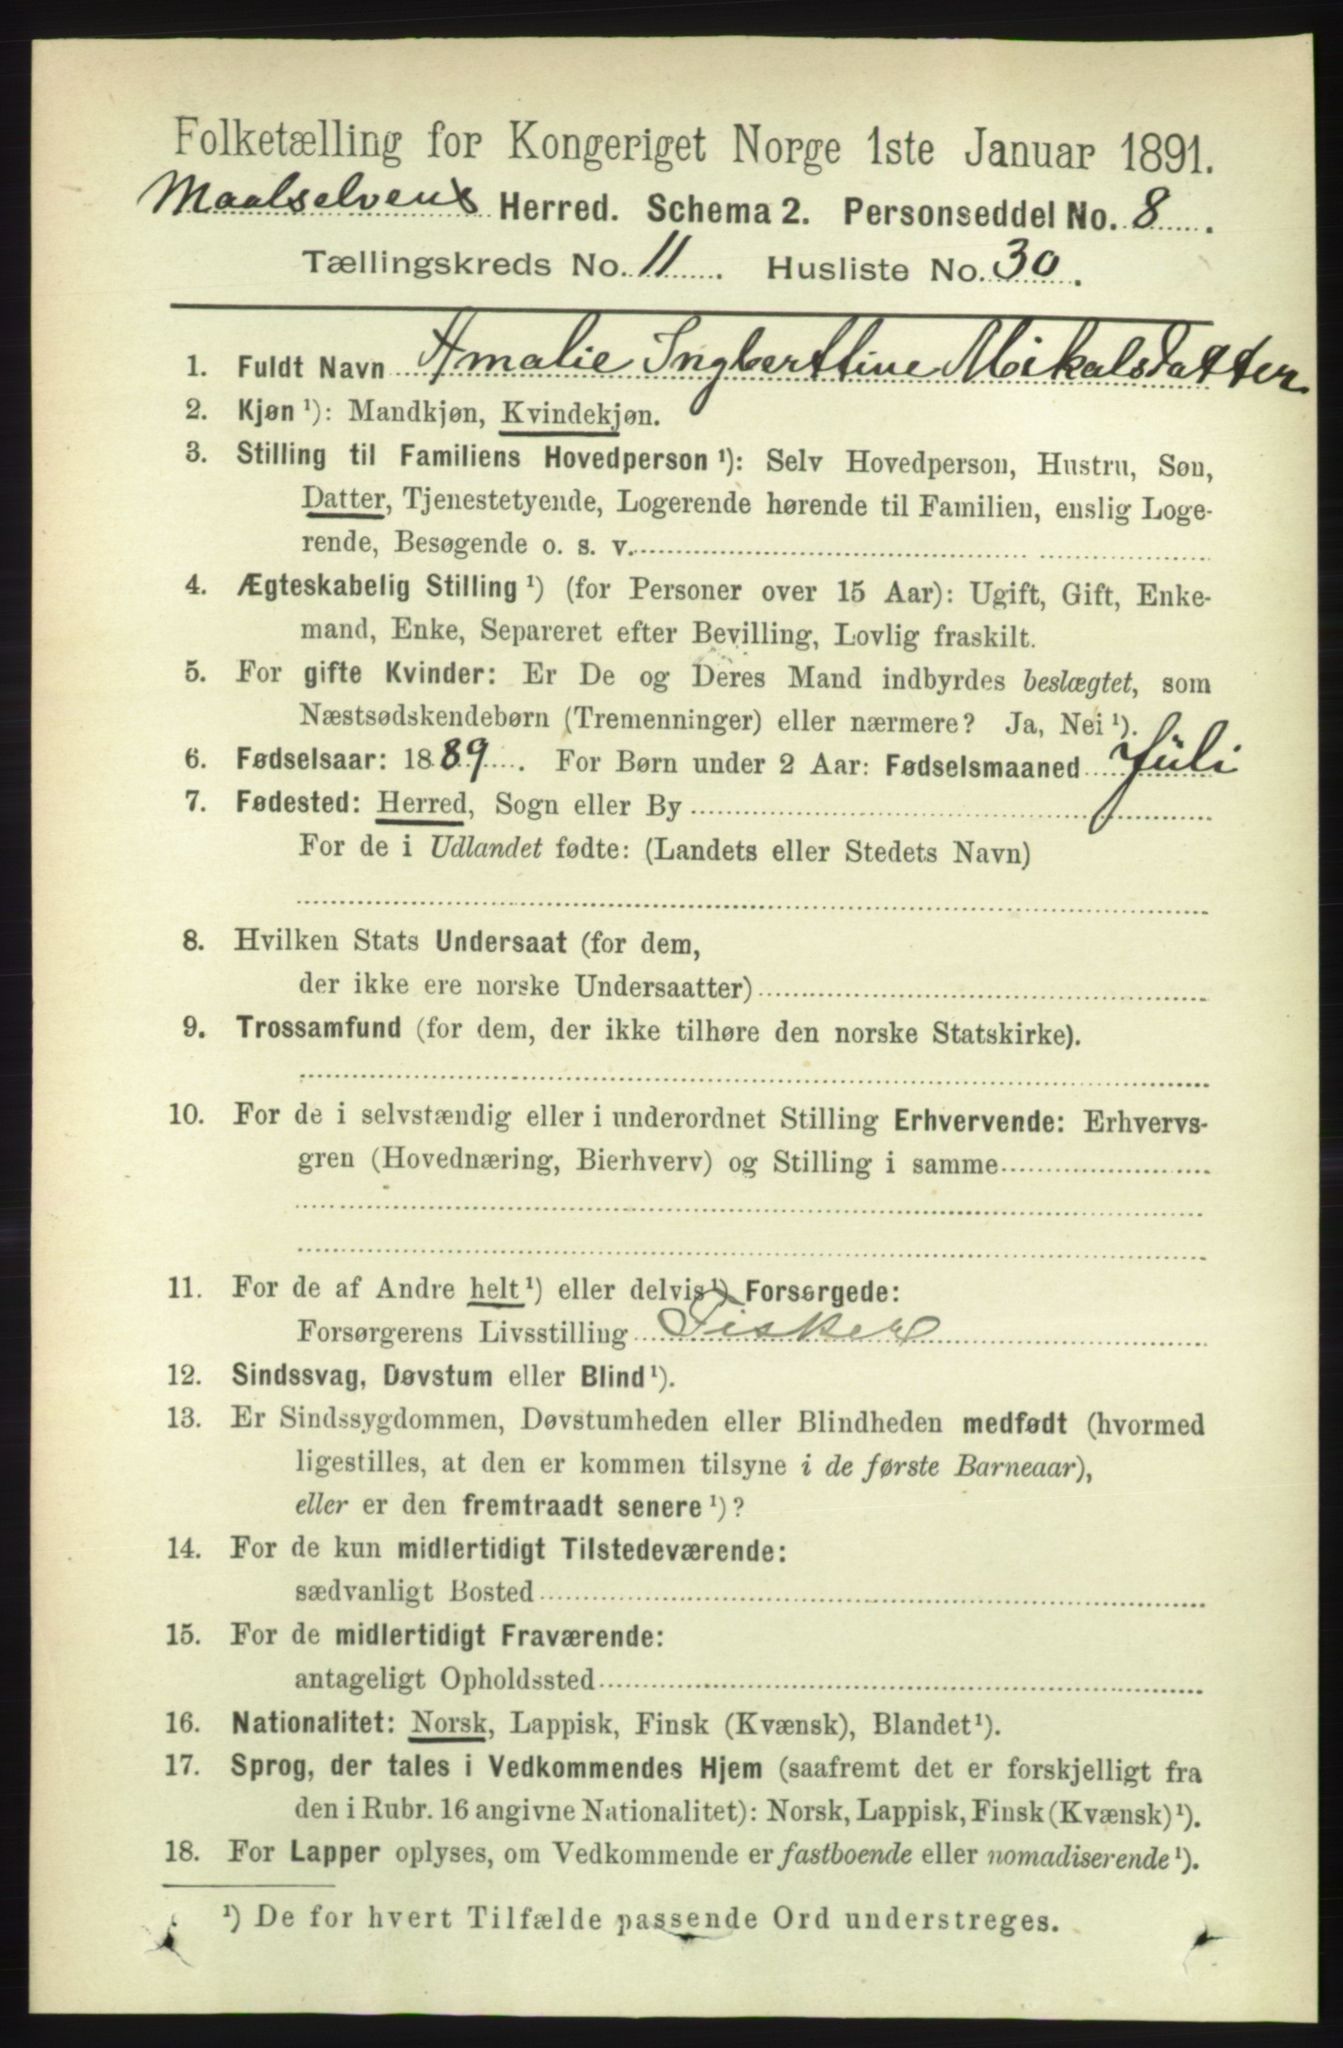 Folketælling for Kongeriget Norge 1ste Januar 1891.
Maalselvens Herred. Schema 2. Personseddel No. 8.
Tællingskreds No. 11. Husliste No. 30.
1. Fuldt Navn Amalie Ingberttine Mikalsdatter
2. Kjøn ¹): Mandkjøn, Kvindekjøn.
3. Stilling til Familiens Hovedperson ¹): Selv Hovedperson, Hustru, Søn,
Datter, Tjenestetyende, Logerende hørende til Familien, enslig Loge-
rende, Besøgende o. s. v.
4. Ægteskabelig Stilling ¹) (for Personer over 15 Aar): Ugift, Gift, Enke-
mand, Enke, Separeret efter Bevilling, Lovlig fraskilt.
5. For gifte Kvinder: Er De og Deres Mand indbyrdes beslægtet, som
Næstsødskendebørn (Tremenninger) eller nærmere? Ja, Nei ¹).
6. Fødselsaar: 1889. For Børn under 2 Aar: Fødselsmaaned Juli
7. Fødested: Herred, Sogn eller By
For de i Udlandet fødte: (Landets eller Stedets Navn)
8. Hvilken Stats Undersaat (for dem,
der ikke ere norske Undersaatter)
9. Trossamfund (for dem, der ikke tilhøre den norske Statskirke).
10. For de i selvstændig eller i underordnet Stilling Erhvervende: Erhvervs-
gren (Hovednæring, Bierhverv) og Stilling i samme
11. For de af Andre helt ¹) eller delvis ¹) Forsørgede:
Forsørgerens Livsstilling Fisker
12. Sindssvag, Døvstum eller Blind ¹).
13. Er Sindssygdommen, Døvstumheden eller Blindheden medfødt (hvormed
ligestilles, at den er kommen tilsyne i de første Barneaar),
eller er den fremtraadt senere ¹)?
14. For de kun midlertidigt Tilstedeværende:
sædvanligt Bosted
15. For de midlertidigt Fraværende:
antageligt Opholdssted
16. Nationalitet: Norsk, Lappisk, Finsk (Kvænsk), Blandet ¹).
17. Sprog, der tales i Vedkommendes Hjem (saafremt det er forskjelligt fra
den i Rubr. 16 angivne Nationalitet): Norsk, Lappisk, Finsk (Kvænsk) ¹).
18. For Lapper oplyses, om Vedkommende er fastboende eller nomadiserende ¹).
¹) De for hvert Tilfælde passende Ord understreges.